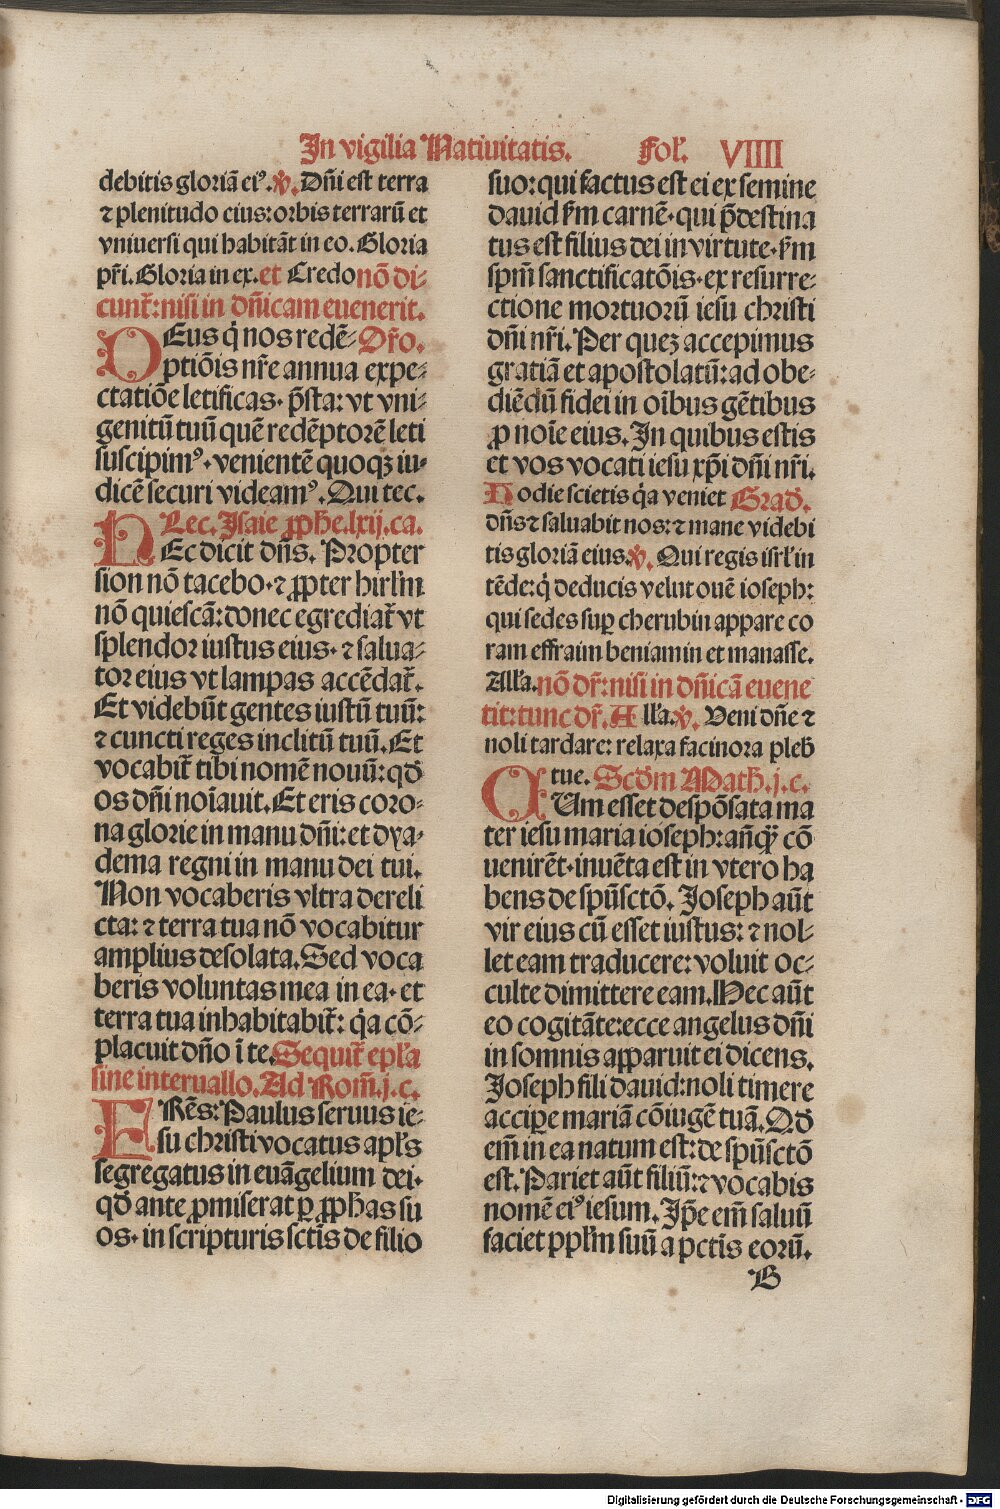 In vigilia Natiuitatis. Fol'. VIIII
debitis gloriā ei⁹. ℣. Dn̄i est terra
⁊ plenitudo eius: orbis terrarū et
vniuersi qui habitāt in eo. Gloria
pr̄i. Gloria in ex. et Credo nō di-
cunt᷑: nisi in dn̄icam euenerit.
DEus q̇ nos redē- Or̄o.
ptiōis nr̄e annua expe-
ctatiōe letificas. p̄sta: vt vni-
genitū tuū quē redēptorē leti
suscipim⁹. venientē quoqꝫ iu-
dicē securi videam⁹. Qui tec.
Lec. Isaie ꝓphe. lxij. ca.
HEc dicit dn̄s. Propter
sion nō tacebo. ⁊ ꝓpter hirl'm
nō quiescā: donec egrediat᷑ vt
splendor iustus eius. ⁊ salua-
tor eius vt lampas accēdat᷑.
Et videbūt gentes iustū tuū:
⁊ cuncti reges inclitū tuū. Et
vocabit᷑ tibi nomē nouū: qd̄
os dn̄i noīauit. Et eris coro-
na glorie in manu dn̄i: et dya-
dema regni in manu dei tui.
Non vocaberis vltra dereli
cta: ⁊ terra tua nō vocabitur
amplius desolata. Sed voca
beris voluntas mea in ea. et
terra tua inhabitabit᷑: q̇a cō-
placuit dn̄o ī te. Sequit᷑ epl'a
sine interuallo. Ad Rom̄. j. c.
FRēs: Paulus seruus ie-
su christi vocatus apl's
segregatus in euāgelium dei.
qd̄ ante ꝓmiserat ꝑ ꝓphas su
os. in scripturis sctīs de filio
suo: qui factus est ei ex semine
dauid ẜm carnē. qui p̄destina
tus est filius dei in virtute. ẜm
spm̄ sanctificatōis. ex resurre-
ctione mortuorū iesu christi
dn̄i nr̄i. Per quez accepimus
gratiā et apostolatū: ad obe-
diēdū fidei in oībus gētibus
ꝓ noīe eius. In quibus estis
et vos vocati iesu xp̄i dn̄i nr̄i.
Hodie scietis q̇a veniet Grad̄.
dn̄s ⁊ saluabit nos: ⁊ mane videbi
tis gloriā eius. ℣. Qui regis isrl' in
tēde: q̇ deducis velut ouē ioseph:
qui sedes sup̱ cherubin appare co
ram effraim beniamin et manasse.
All'a. nō dr̄: nisi in dn̄icā euene
tit: tunc dr̄. All'a. ℣. Veni dn̄e ⁊
noli tardare: relaxa facinora pleb̄
tue. Scd̄m Math̄. j. c.
CUm esset despōsata ma
ter iesu maria ioseph: an̄qꝫ cō
uenirēt. inuēta est in vtero ha
bens de spū sctō. Ioseph aūt
vir eius cū esset iustus: ⁊ nol-
let eam traducere: voluit oc-
culte dimittere eam. Hec aūt
eo cogitāte: ecce angelus dn̄i
in somnis apparuit ei dicens.
Ioseph fili dauid: noli timere
accipe mariā cōiugē tuā. Qd̄
em̄ in ea natum est: de spū sctō
est. Pariet aūt filiū: ⁊ vocabis
nomē ei⁹ iesum. Ip̄e em̄ saluū
faciet ppl'm suū a pctīs eorū.
B
Digitalisierung gefördert durch die Deutsche Forschungsgemeinschaft - DFG